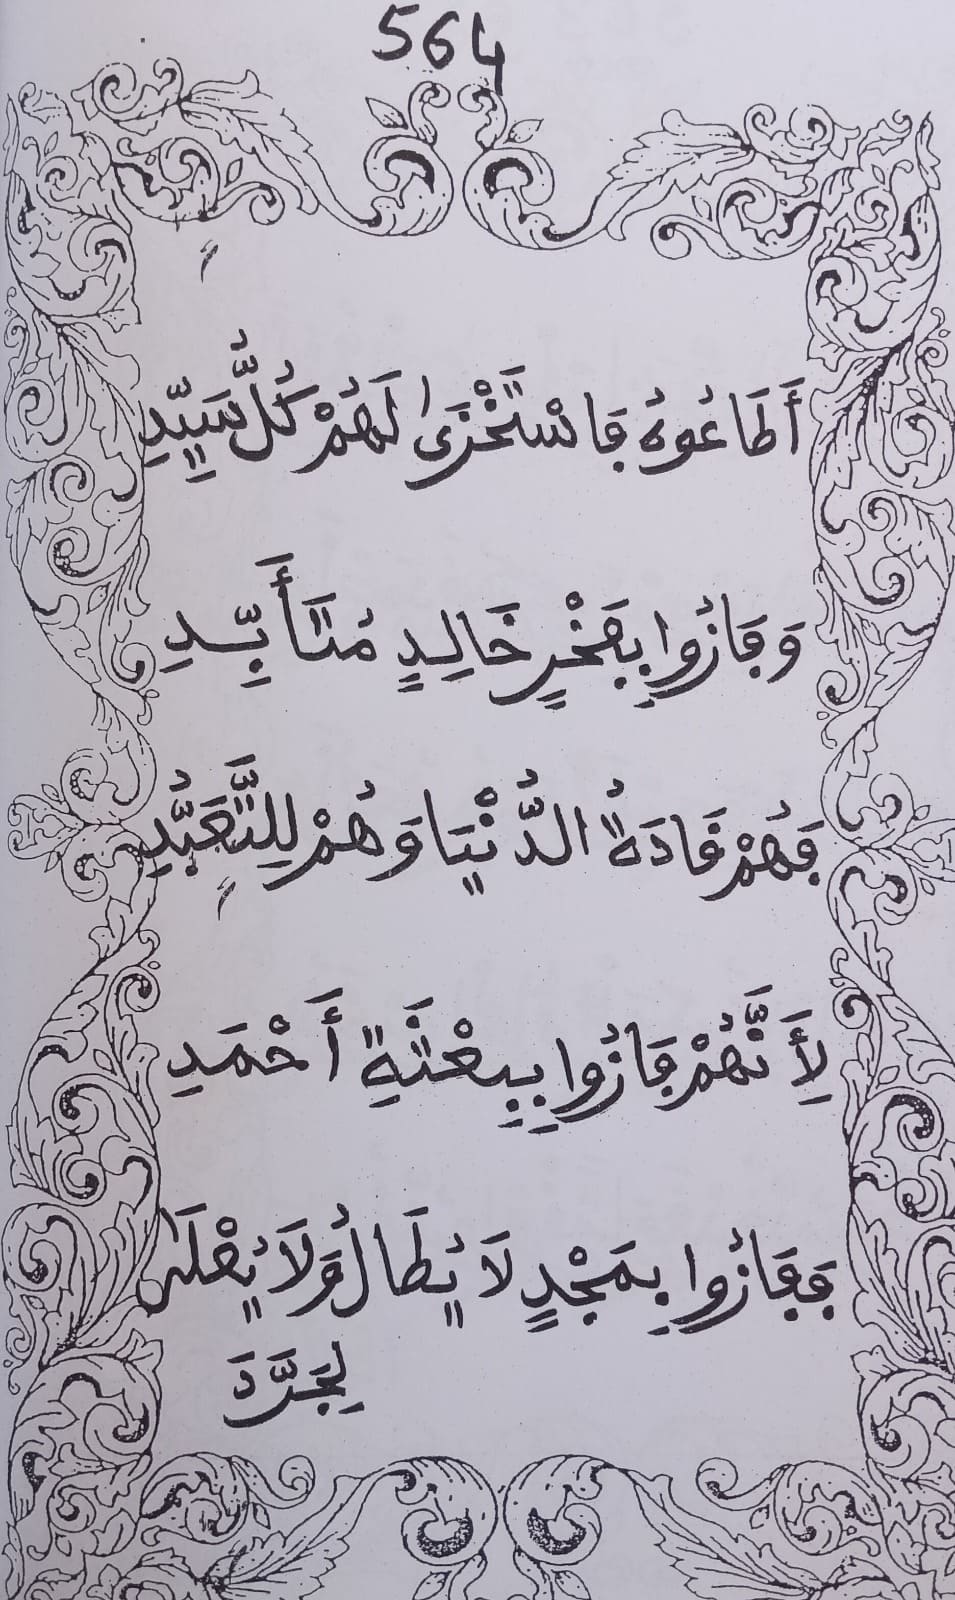 564
أَطَاعُوهُ فَاسْتَخْزَى لَهُمْ كُلُّ سَيِّدِ
وَفَازُوا بِفَخْرٍ خَالِدٍ مُتَأَبِّدِ
فَهُمْ قَادَةُ الدُّنْيَا وَهُمْ لِلتَّعَبُّدِ
لِأَنَّهُمْ فَازُوا بِبِعْثَةِ أَحْمَدِ
فَفَازُوا بِمَجْدٍ لَا يُطَالُ وَلَا